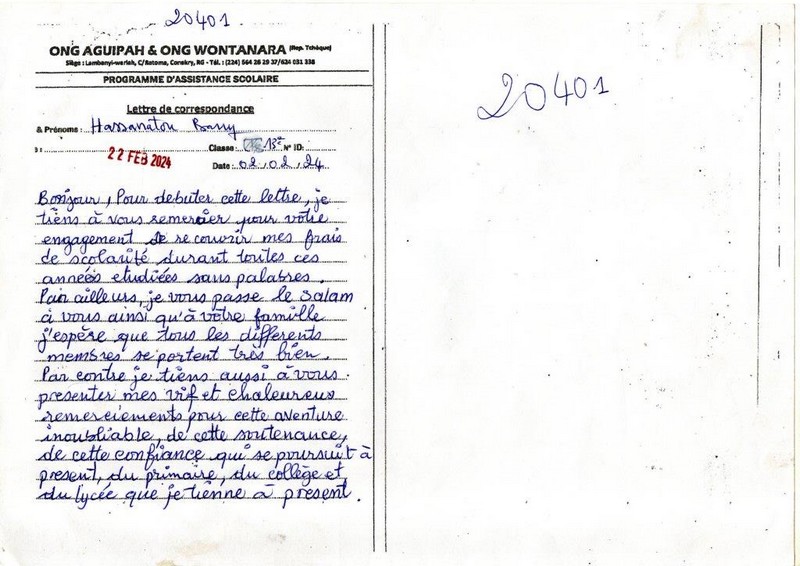 20401.
ONG AGUIPAH & ONG WONTANARA (Rep. Tchèque)
Siège : Lambanyi-wariah, C/Ratoma, Conakry, RG - Tél. : (224) 564 26 29 37/624 031 338
PROGRAMME D'ASSISTANCE SCOLAIRE
Lettre de correspondance
& Prénome : Hassanatou Barry
Classe : 13e N° ID:
22 FEB 2024
Date : 02, 02, 24
Bonjour, Pour debuter cette lettre, je
tiens à vous remercier pour votre
engagement de recouvrir mes frais
de scolarité durant toutes ces
années etudiées sans palabres.
Par ailleurs, je vous passe le salam
à vous ainsi qu'à votre famille
j'espère que tous les differents
membres se portent très bien.
Par contre je tiens aussi à vous
presenter mes vif et chaleureux
remerciements pour cette aventure
inoubliable, de cette soutenance,
de cette confiance qui se poursuit à
present, du primaire, du collège et
du lycée que je tienne à present.
20401